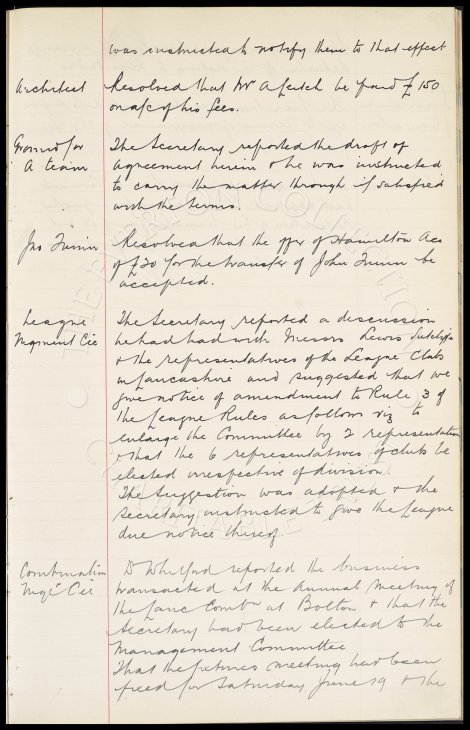 was instructed to notify them to that effect
Architect Resolved that Mr A Leitch be paid £150
on a/c of his fees.
Ground for The Secretary reported the draft of
A team agreement herein & he was instructed
to carry the matter through if satisfied
with the terms.
Jno Quinn Resolved that the offer of Hamilton Acs
of £20 for the transfer of John Quinn be
accepted.
League The Secretary reported a discussion
Mgment Cee he had had with Messrs Lewis Sutcliffe
& the representatives of the League Clubs
in Lancashire and suggested that we
give notice of amendment to Rule 3 of
the League Rules as follows viz to
enlarge the Committee by 2 representatives
& that the 6 representatives of clubs be
elected irrespective of division.
The suggestion was adopted & the
Secretary instructed to give the League
due notice thereof
Combination Dr Whitford reported the business
Mgt Cee transacted at the Annual Meeting of
the Lanc Combn at Bolton & that the
Secretary had been elected to the
Management Committee
That the fixtures meeting had been
fixed for Saturday June 19 & the